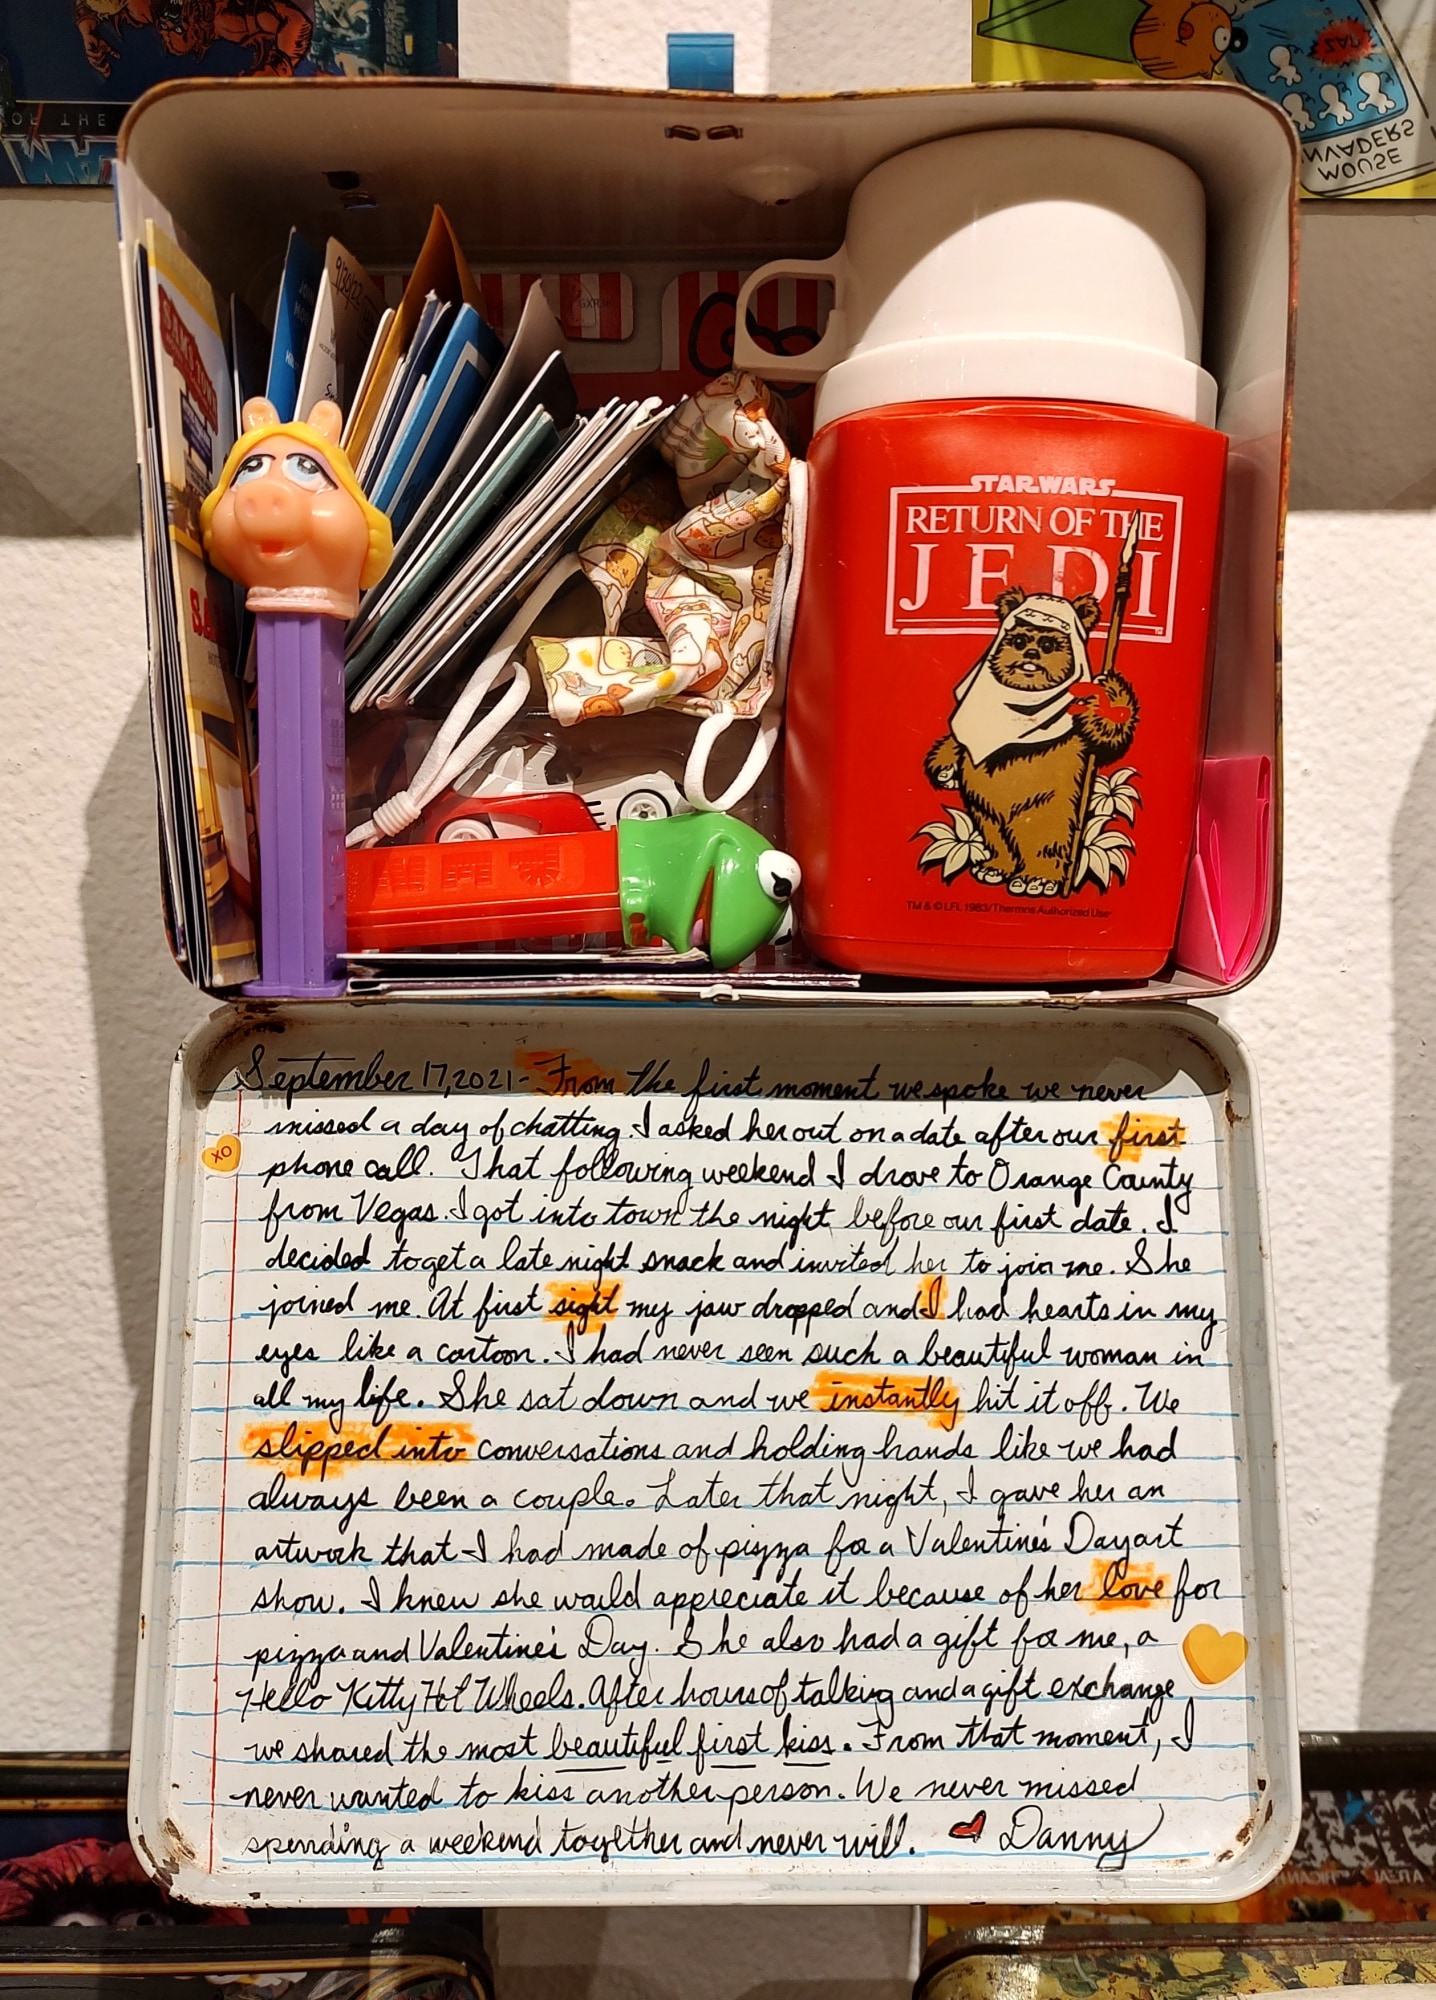 OR THE
ZAP
INVADERS
MOUSE
9/30/22
STAR WARS
RETURN OF THE
JEDI
TM & © LFL 1983/Thermos Authorized User
September 17, 2021- From the first moment we spoke we never
missed a day of chatting. I asked her out on a date after our first
XO
phone call. That following weekend I drove to Orange County
from Vegas. I got into town the night before our first date. I
decided to get a late night snack and invited her to join me. She
joined me. At first sight my jaw dropped and I had hearts in my
eyes like a cartoon. I had never seen such a beautiful woman in
all my life. She sat down and we instantly hit it off. We
slipped into conversations and holding hands like we had
always been a couple. Later that night, I gave her an
artwork that I had made of pizza for a Valentine's Day art
show. I knew she would appreciate it because of her love for
pizza and Valentine's Day. She also had a gift for me, a
Hello Kitty Hot Wheels. After hours of talking and a gift exchange
we shared the most beautiful first kiss. From that moment, I
never wanted to kiss another person. We never missed
spending a weekend together and never will. ♥ Danny